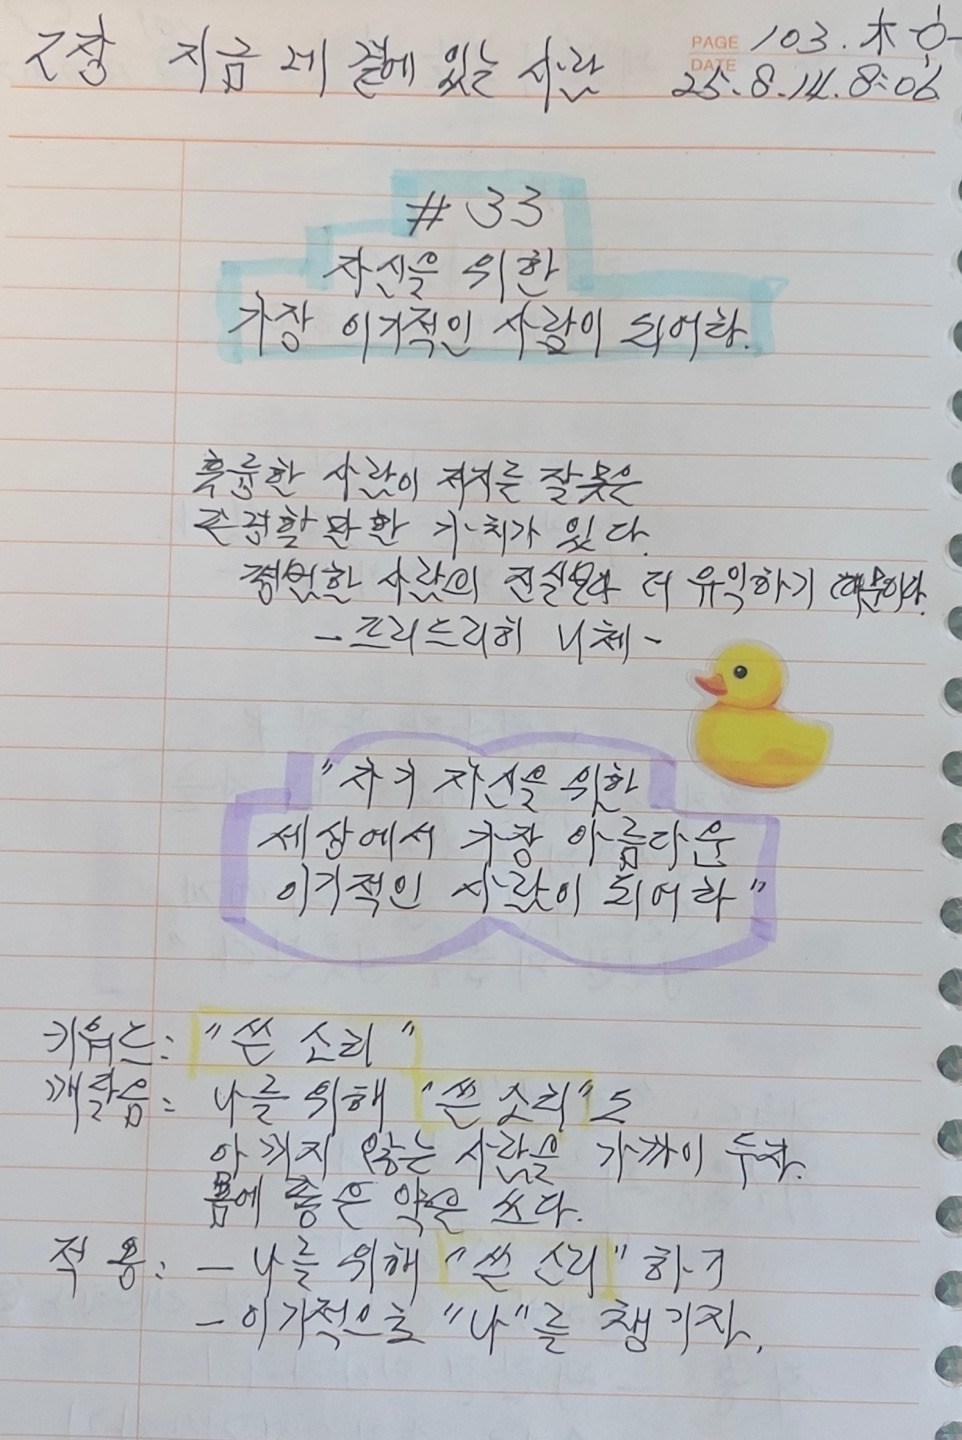 2장 지금 네 곁에 있는 사람
PAGE 103. 木
DATE 25.8.14.8:06
#33
자신을 위한
가장 이기적인 사람이 되어라.
훌륭한 사람이 저지를 잘못은
존경할 만한 가치가 있다.
평범한 사람의 진실보다 더 유익하기 때문이다.
-프리드리히 니체-
"자기 자신을 위한
세상에서 가장 아름다운
이기적인 사람이 되어라"
키워드: "쓴 소리"
깨달음: 나를 위해 "쓴 소리"도
아끼지 않는 사람을 가까이 두자.
몸에 좋은 약은 쓰다.
적용: -나를 위해 "쓴 소리" 하기
-이기적으로 "나"를 챙기자.